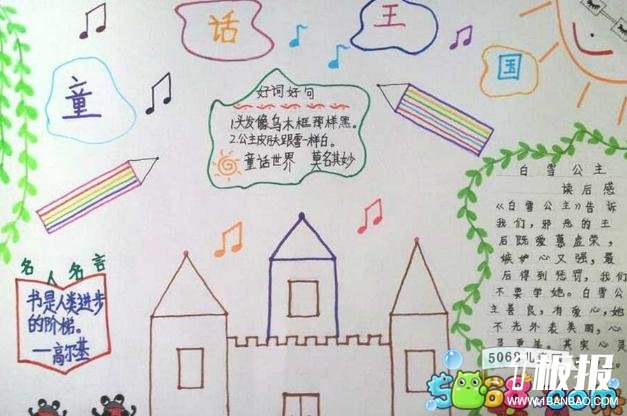 童 话 王 国
好词好句
1.头发像乌木框那样黑。
2.公主皮肤跟雪一样白。
童话世界 莫名其妙
名人名言
书是人类进步
的阶梯。
——高尔基
白雪公主
读后感
《白雪公主》告诉
我们,邪恶的王
后既爱慕虚荣,
嫉妒心又强,最
后得到惩罚,我们
不要学她。白雪公
主善良,有爱心,她
不光外表美丽,心
灵更美。其实心灵
5068儿
板报
WWW.1BANBAO.COM